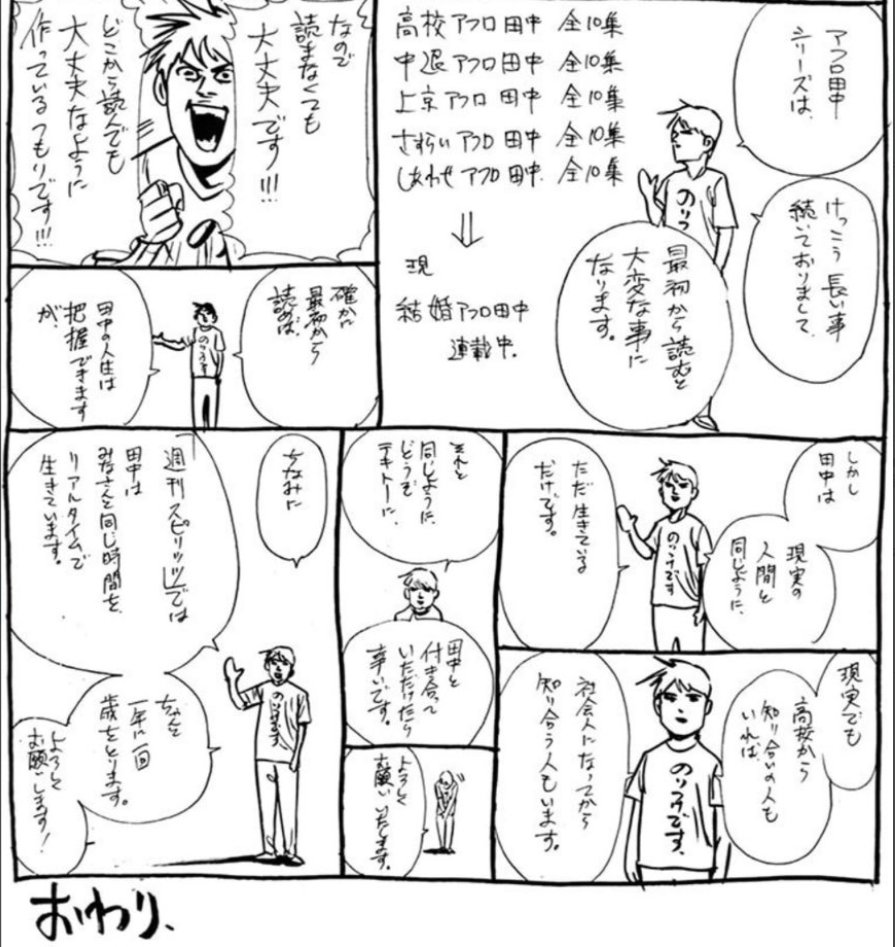 アフロ田中
シリーズは、
けっこう長い事
続いておりまして、
高校アフロ田中 全10集
中退アフロ田中 全10集
上京アフロ田中 全10集
さすらいアフロ田中 全10集
しあわせアフロ田中 全10集
⇓
現
結婚アフロ田中
連載中.
最初から読むと
大変な事に
なります。
のりつ
なので
読まなくても
大丈夫です!!!
どこから読んでも
大丈夫なように
作っているつもりです!!!
確かに
最初から
読めば、
田中の人生は
把握できます
が、
のりつけ
しかし
田中は
現実の
人間と
同じように、
ただ生きている
だけです。
のりつけです
現実でも
高校から
知り合いの人も
いれば、
社会人になってから
知り合う人もいます。
のりつけです、
それと
同じように、
どうぞ
テキトーに、
田中と
付き合って
いただけたら
幸いです。
よろしく
お願いいたします。
ちなみに
週刊スピリッツでは
田中は
みなさんと同じ時間を、
リアルタイムで
生きています。
のりつけです、
ちゃんと
一年に一回
歳をとります。
よろしく
お願いします!
おわり、